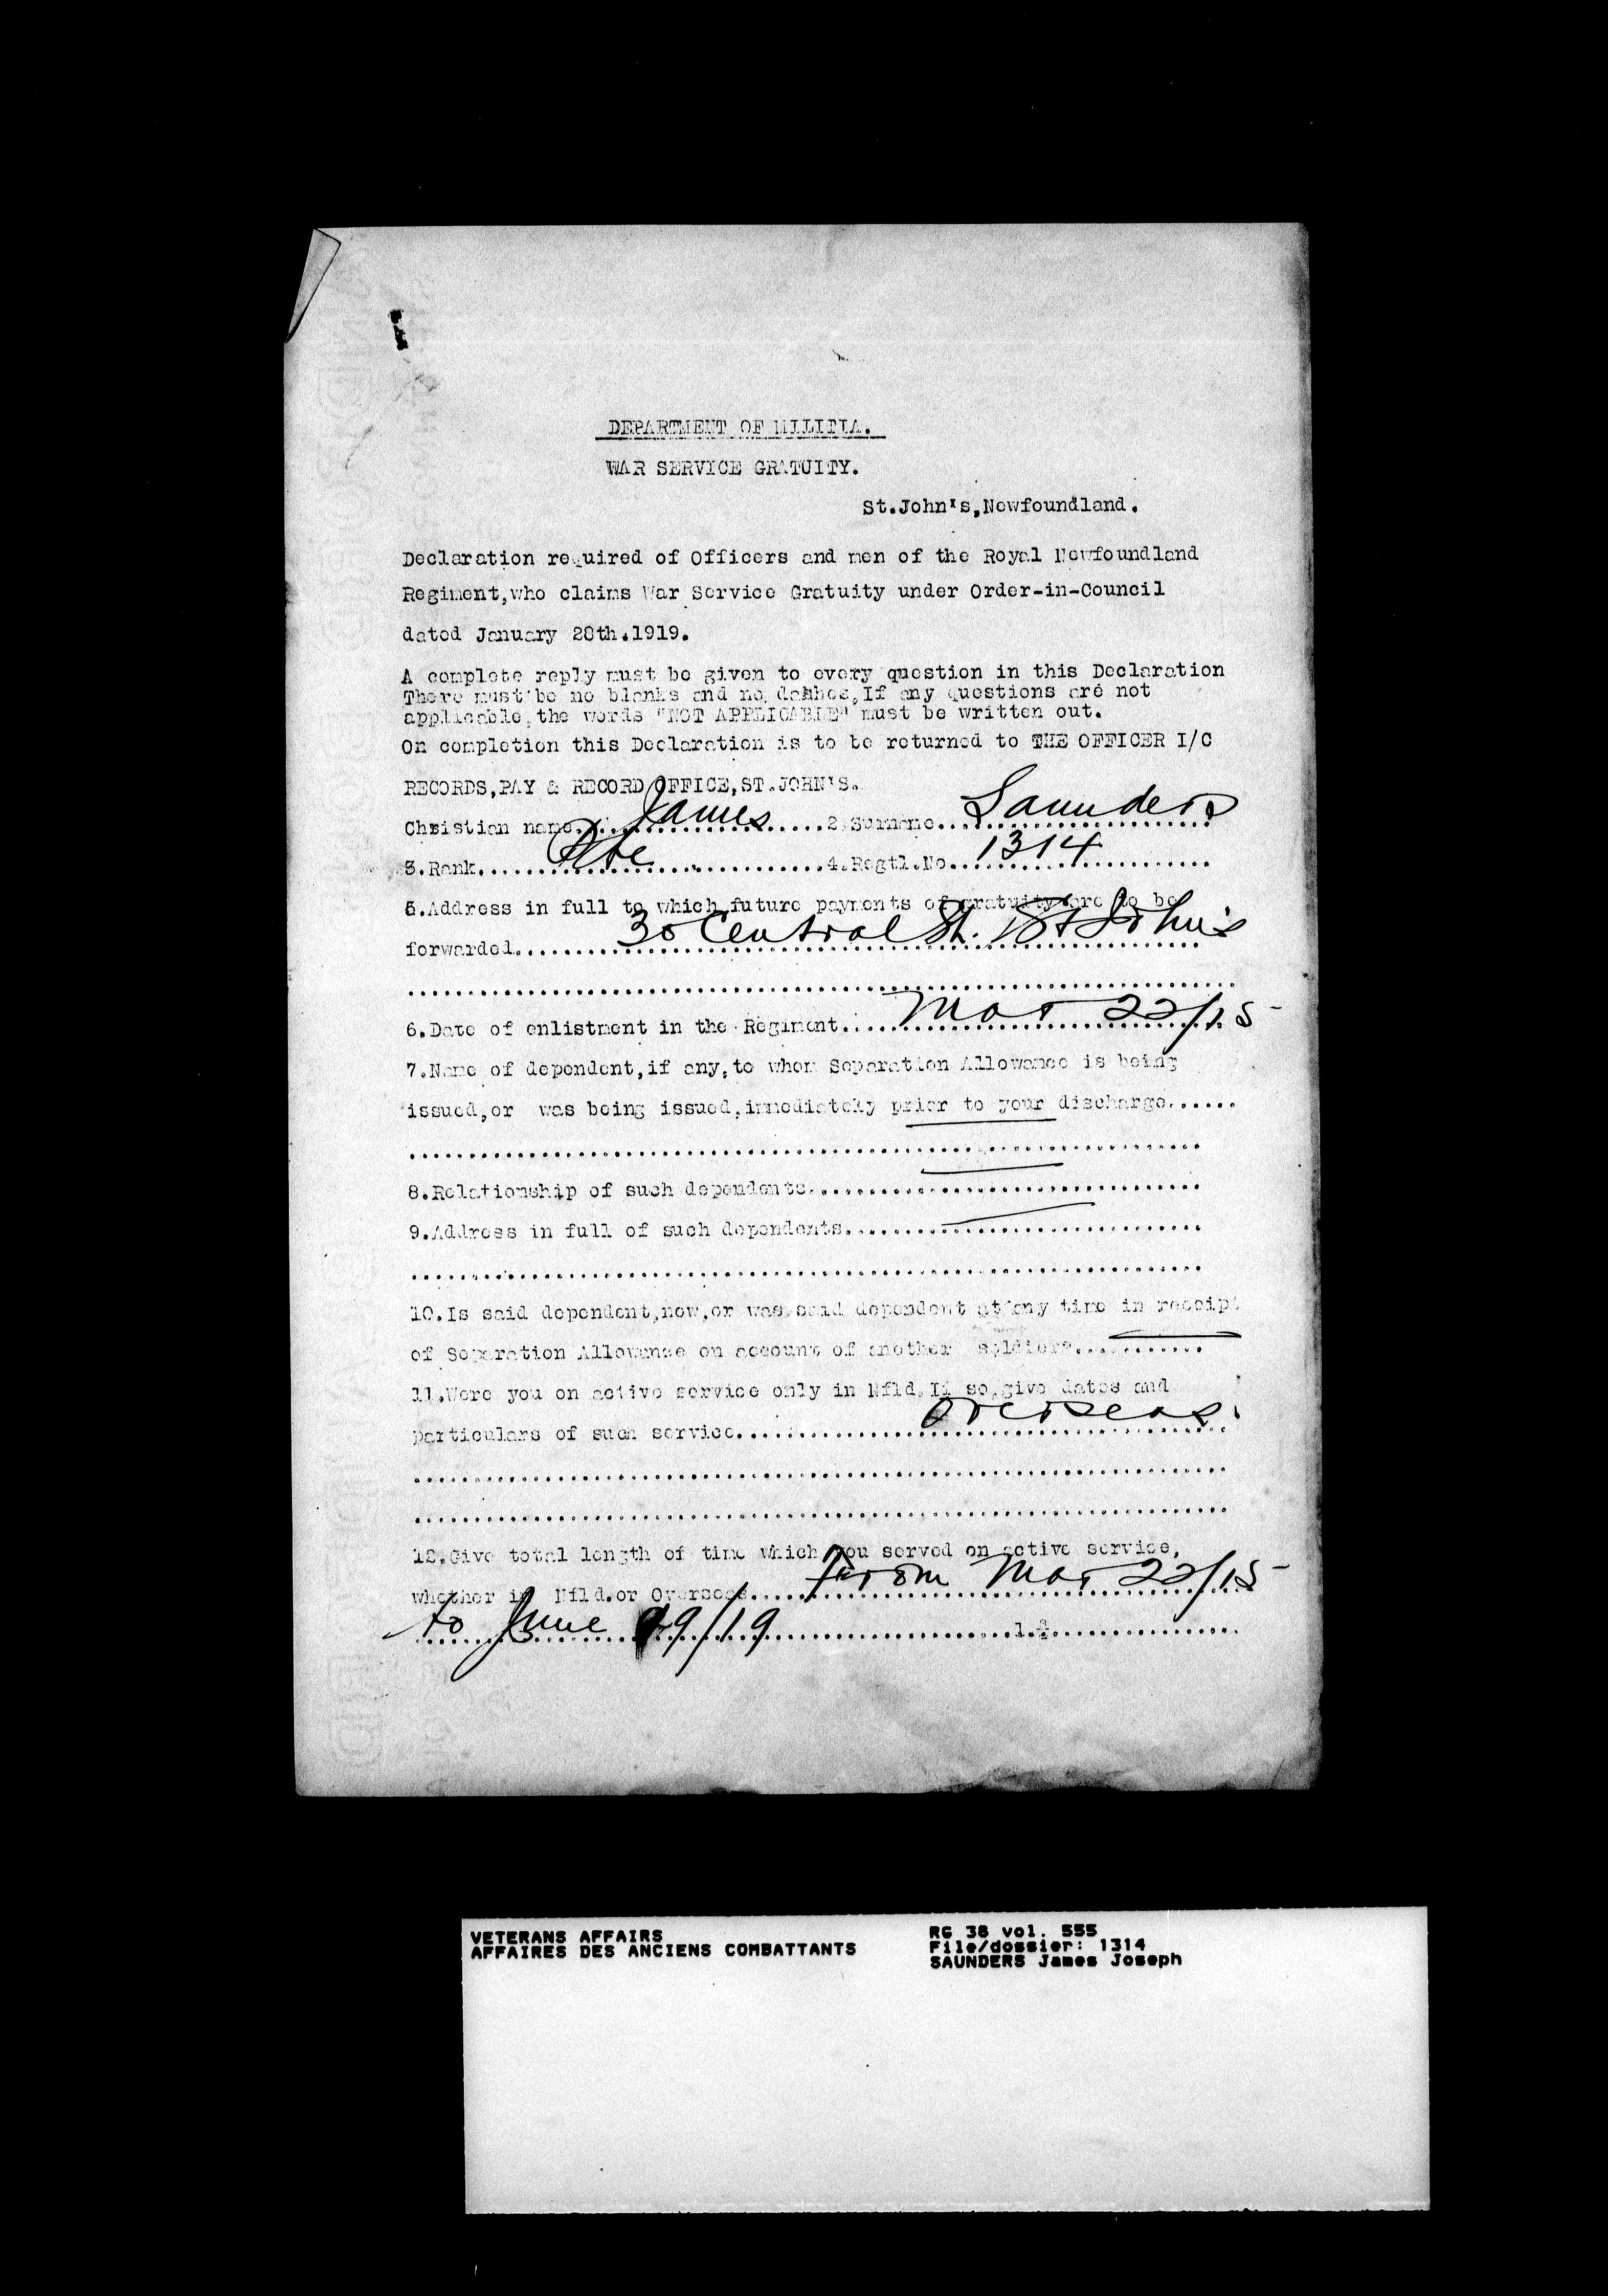 DEPARTMENT OF MILITIA.
WAR SERVICE GRATUITY.
St.John's,Newfoundland.
Declaration required of Officers and men of the Royal Newfoundland
Regiment,who claims War Service Gratuity under Order-in-Council
dated January 28th.1919.
A complete reply must be given to every question in this Declaration
There must be no blanks and no dashes,If any questions are not
applicable,the words "NOT APPLICABLE" must be written out.
On completion this Declaration is to be returned to THE OFFICER I/C
RECORDS,PAY & RECORD OFFICE,ST.JOHN'S.
Christian name....James....2.Surname....Saunders....
3.Rank....Pte....4.Regtl.No....1314....
5.Address in full to which future payments of gratuity are to be
forwarded....30 Central St. St John's
6.Date of enlistment in the Regiment....Mar 22/15
7.Name of dependent,if any,to whom Separation Allowance is being
issued,or was being issued,immediately prior to your discharge......
8.Relationship of such dependents....
9.Address in full of such dependents....
10.Is said dependent,now,or was said dependent at any time in receipt
of Separation Allowance on account of another soldier?....
11.Were you on active service only in Nfld.If so,give dates and
particulars of such service....Overseas.
12.Give total length of time which you served on active service,
whether in Nfld.or Overseas....From Mar 22/15
to June 9/19
VETERANS AFFAIRS
AFFAIRES DES ANCIENS COMBATTANTS
RG 38 vol. 555
File/dossier: 1314
SAUNDERS James Joseph